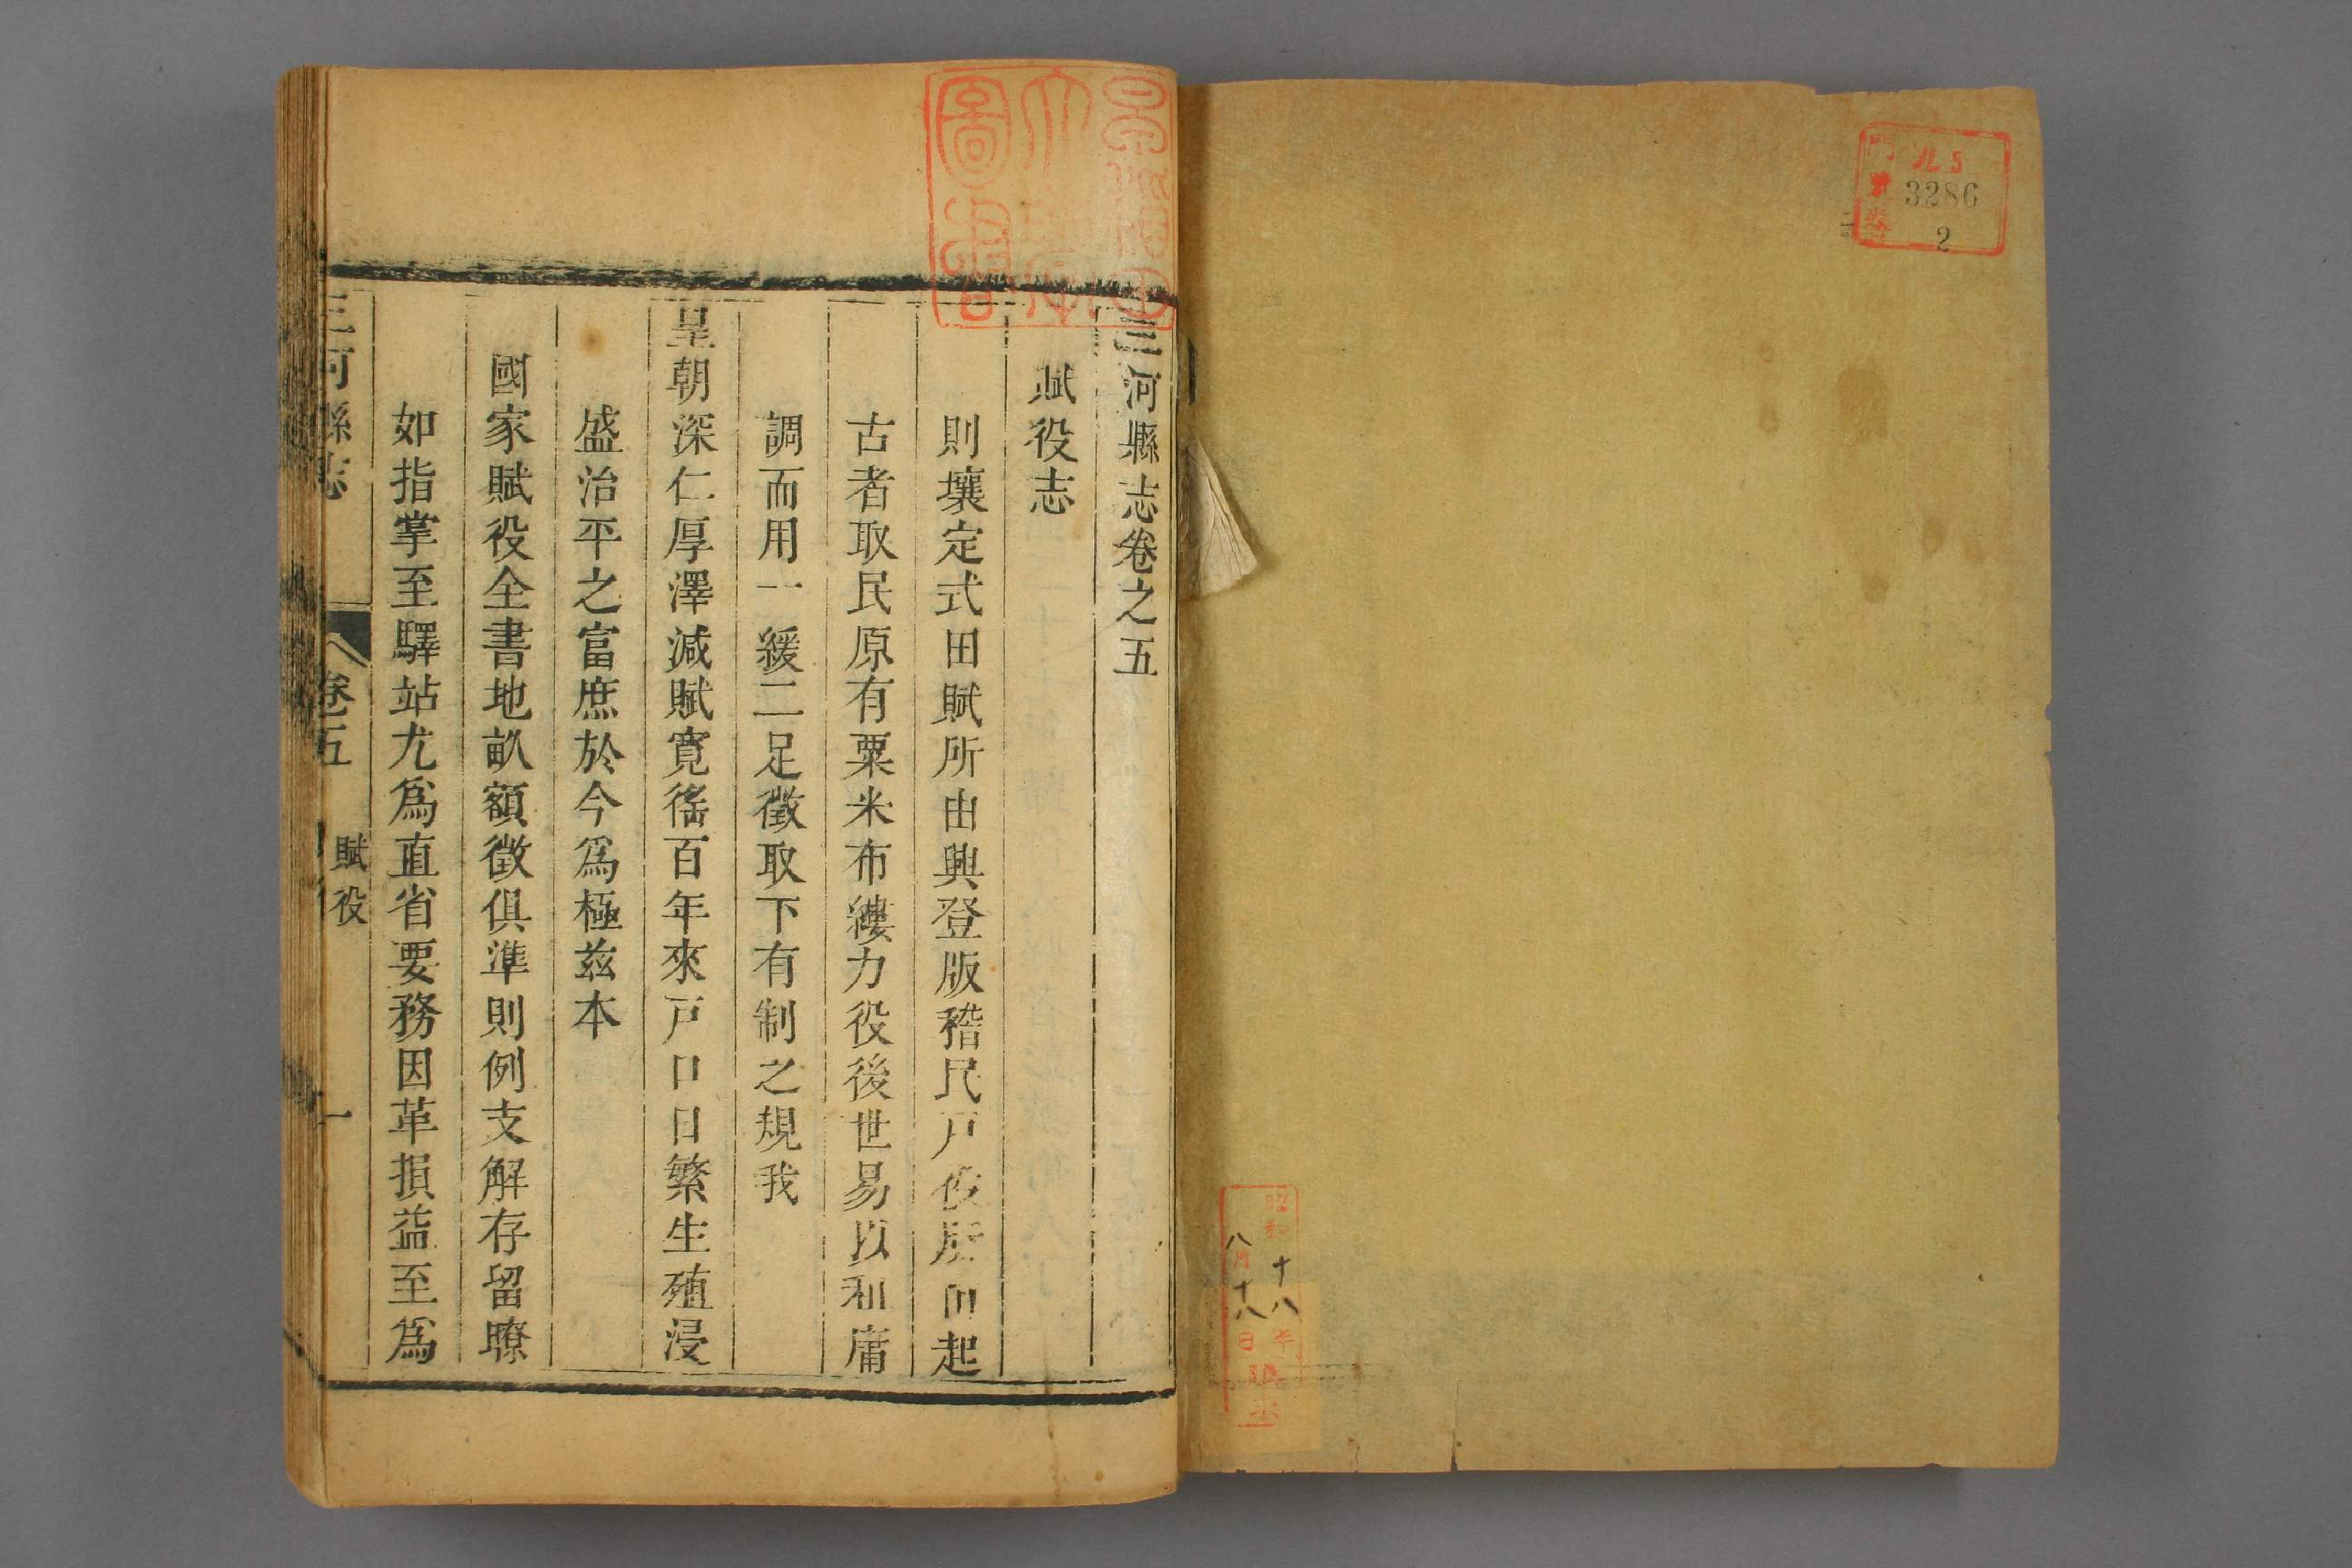 門
ル5
號
3286
卷
2
昭和十八年
八月十八日
購求
三河縣志卷之五
賦役志
則壤定式田賦所由興登版稽民戶役所由起
古者取民原有粟米布縷力役後世易以租庸
調而用一緩二足徵取下有制之規我
皇朝深仁厚澤減賦寬徭百年來戶口日繁生殖浸
盛治平之富庶於今爲極兹本
國家賦役全書地畝額徵俱準則例支解存留瞭
如指掌至驛站尤爲直省要務因革損益至爲
三河縣志
卷五
賦役
一